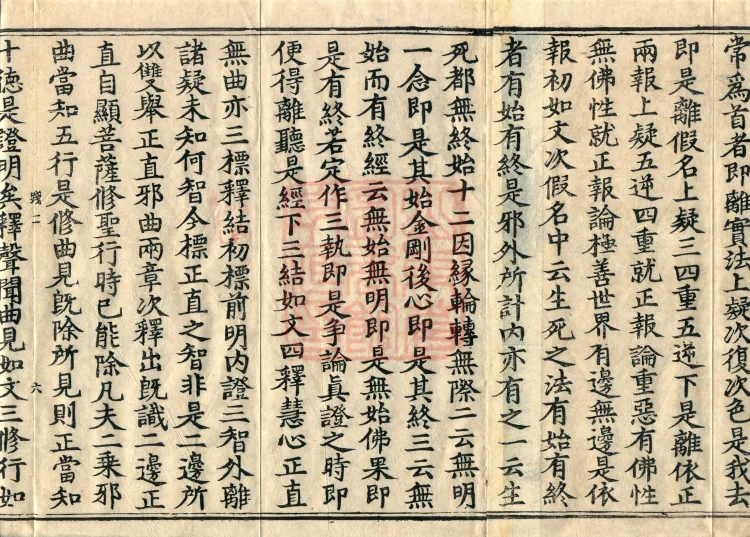 常為首者即離實法上疑次復次色是我去
即是離假名上疑三四重五逆下是離依正
兩報上疑五逆四重就正報論重惡有佛性
無佛性就正報論極善世界有邊無邊是依
報初如文次假名中云生死之法有始有終
者有始有終是邪外所計內亦有之一云生
死都無終始十二因緣輪轉無際二云無明
一念即是其始金剛後心即是其終三云無
始而有終經云無始無明即是無始佛果即
是有終若定作三執即是爭論真證之時即
便得離聽是經下三結如文四釋慧心正直
無曲亦三標釋結初標前明內證三智外離
諸疑未知何智今標正直之智非是二邊所
以雙舉正直邪曲兩章次釋出既識二邊正
直自顯菩薩修聖行時已能除凡夫二乘邪
曲當知五行是修曲見既除所見則正當知
十德是證明矣釋聲聞曲見如文三修行如
六